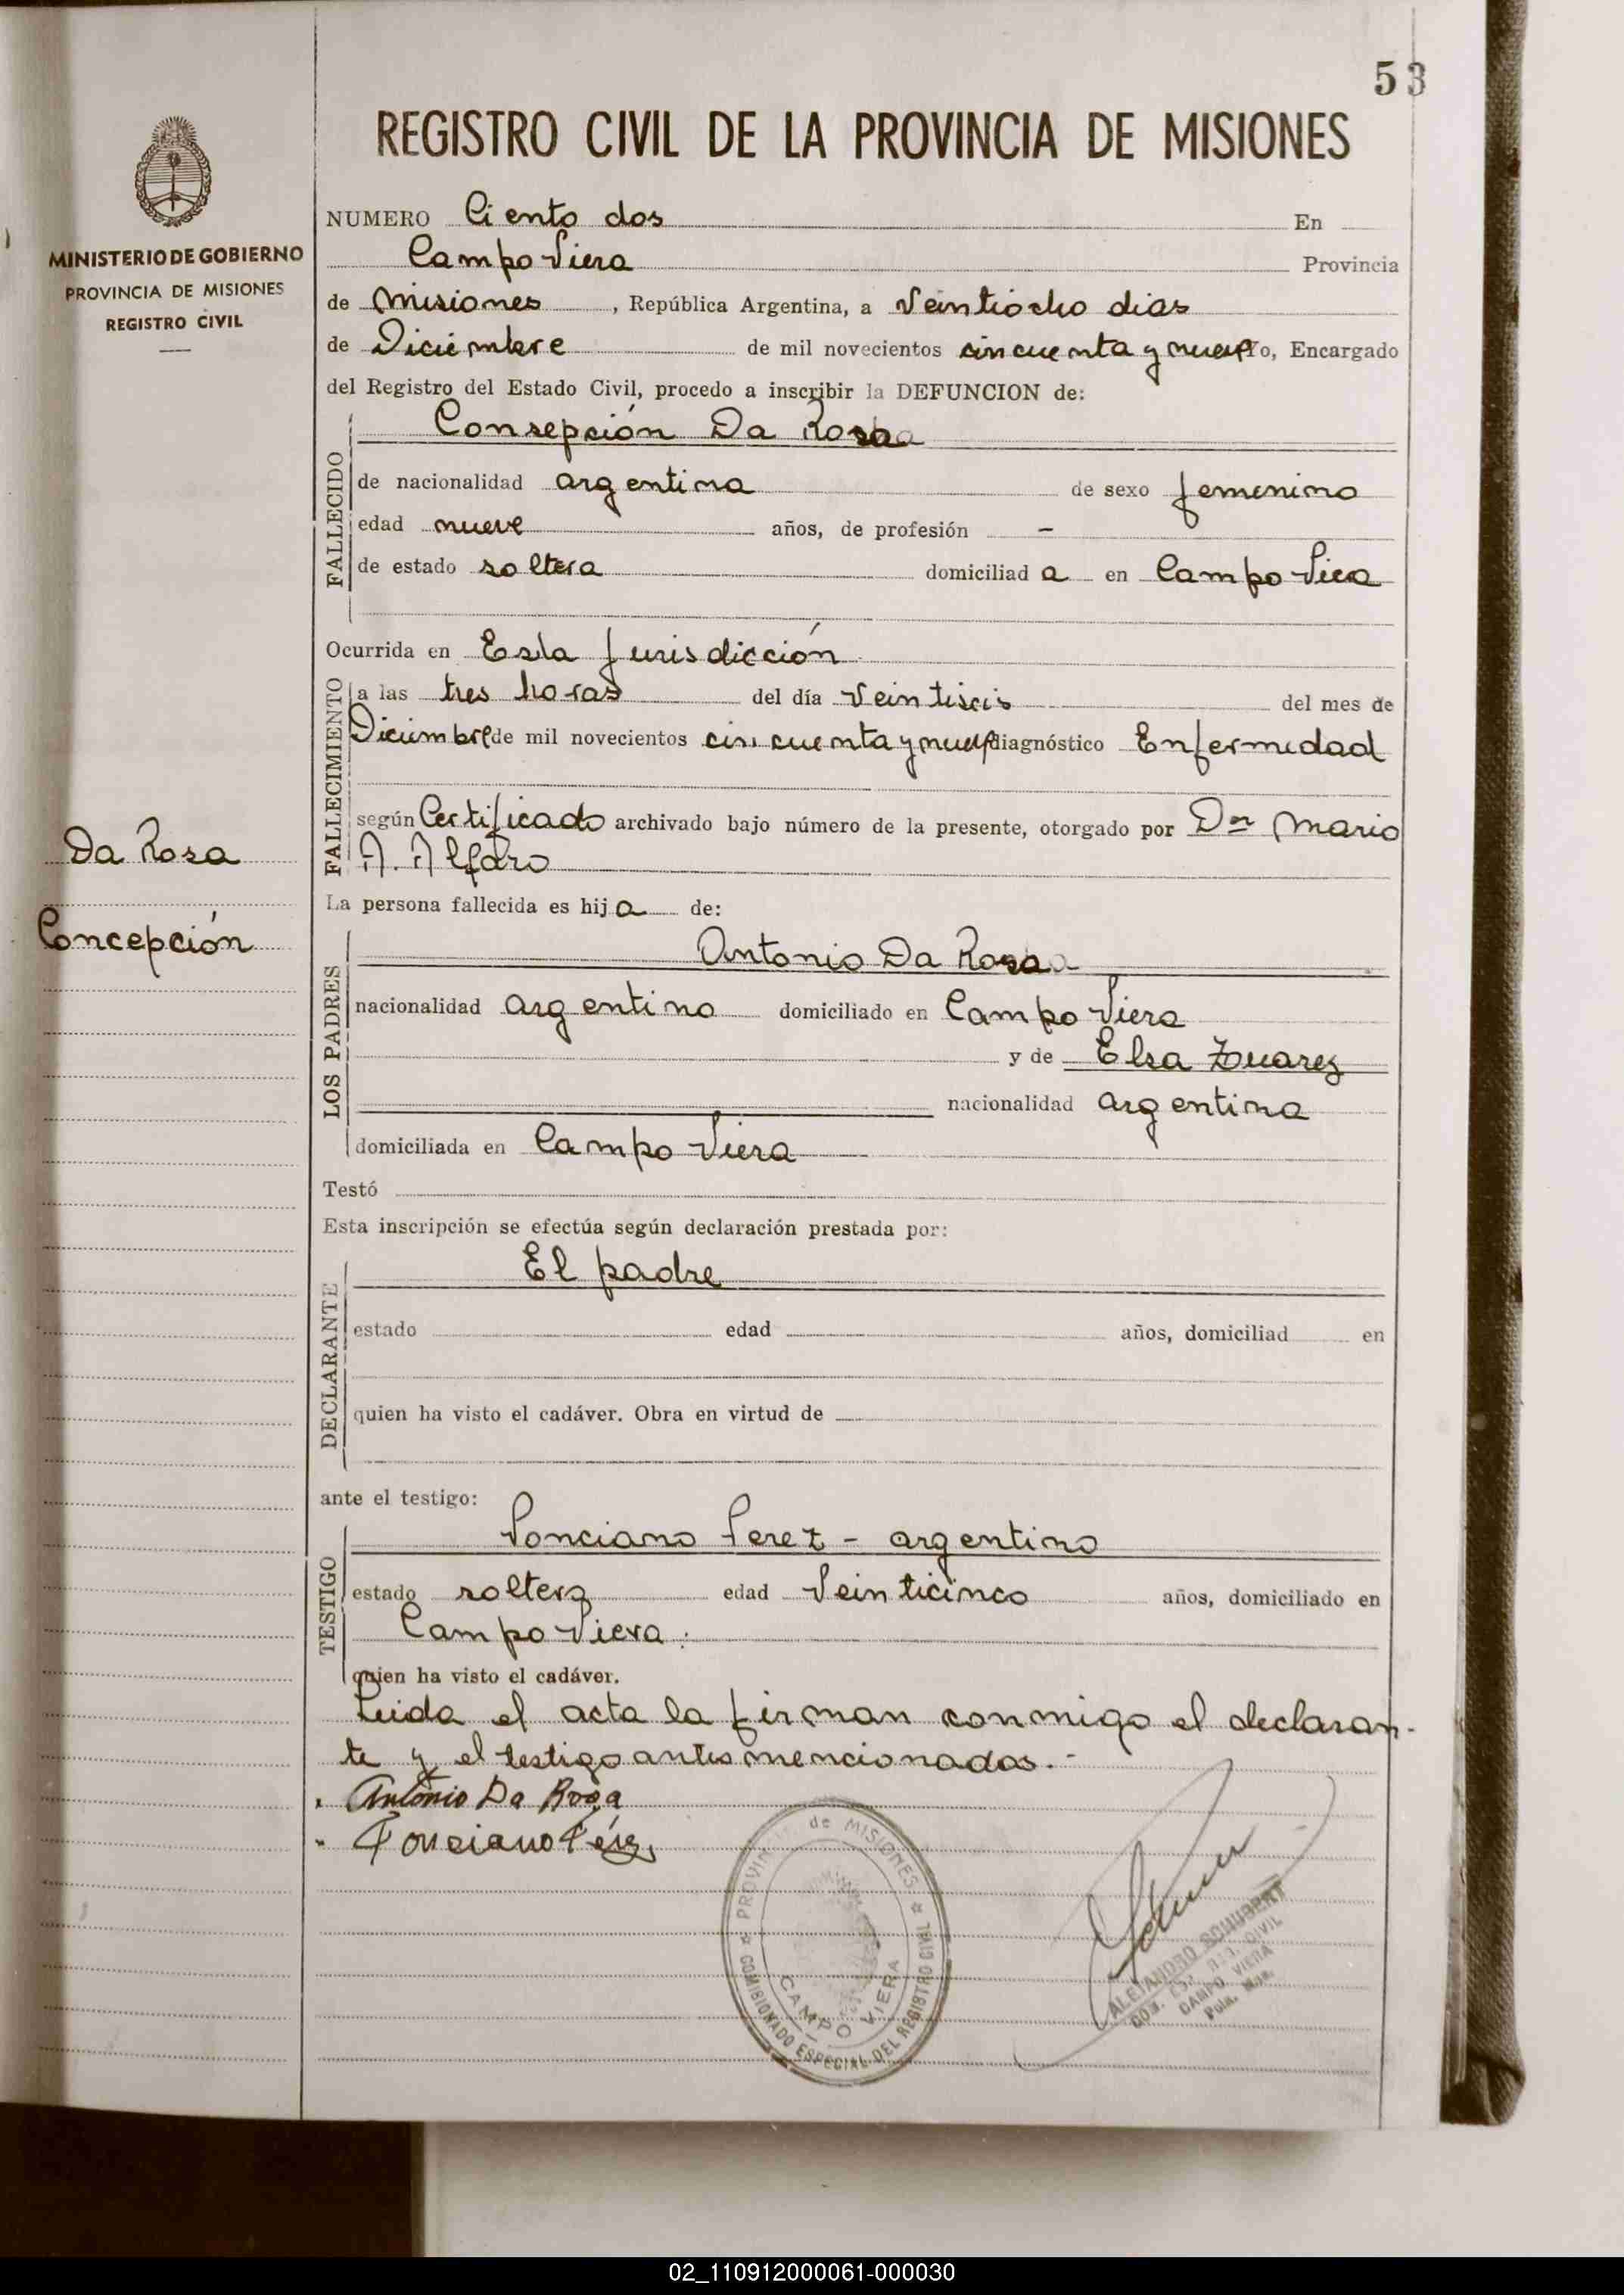 53
REGISTRO CIVIL DE LA PROVINCIA DE MISIONES
MINISTERIO DE GOBIERNO
PROVINCIA DE MISIONES
REGISTRO CIVIL
Da Rosa
Concepción
NUMERO Ciento dos En
Campo Viera Provincia
de Misiones, República Argentina, a Veintiocho dias
de Diciembre de mil novecientos cincuenta y nueve Yo, Encargado
del Registro del Estado Civil, procedo a inscribir la DEFUNCION de:
Consepción Da Rosa
FALLECIDO
de nacionalidad argentina de sexo femenino
edad nueve años, de profesión -
de estado soltera domiciliad a en Campo Viera
Ocurrida en Esta Jurisdicción
FALLECIMIENTO
a las tres horas del día Veintiseis del mes de
Diciembre de mil novecientos cincuenta y nueve diagnóstico Enfermedad
según Certificado archivado bajo número de la presente, otorgado por Dor Mario
A. Alfaro
La persona fallecida es hij a de:
LOS PADRES
Antonio Da Rosa
nacionalidad argentino domiciliado en Campo Viera
y de Elsa Zuarez
nacionalidad argentina
domiciliada en Campo Viera
Testó
Esta inscripción se efectúa según declaración prestada por:
DECLARANTE
El padre
estado edad años, domiciliad en
quien ha visto el cadáver. Obra en virtud de
ante el testigo:
TESTIGO
Ponciano Perez - argentino
estado soltero edad Veinticinco años, domiciliado en
Campo Viera.
quien ha visto el cadáver.
Leida el acta la firman conmigo el declaran-
te y el testigo antes mencionados.-
Antonio Da Roga
Ponciano Pérez
PROVINCIA de MISIONES
COMISIONADO ESPECIAL DEL REGISTRO CIVIL
CAMPO VIERA
ALEJANDRO SCHUBERT
COM. ESP. REG. CIVIL
CAMPO VIERA
Pcia. Mnes.
02_110912000061-000030